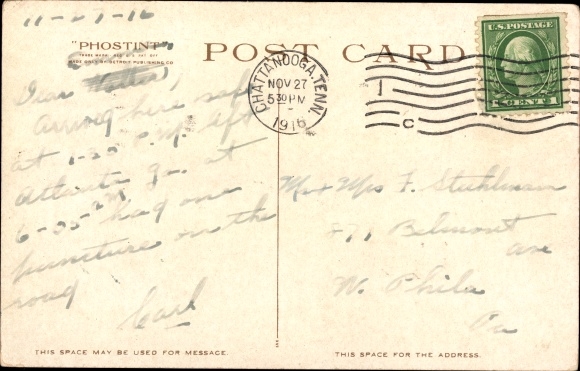 11-27-16
"PHOSTINT"
TRADE MARK REG. U.S. PAT. OFF.
MADE ONLY BY DETROIT PUBLISHING CO.
POST CARD
U.S. POSTAGE
1 CENT 1
CHATTANOOGA, TENN.
NOV 27
5 30 PM
1916
1
C
Dear
Arrived here safe
at 1-20 P.M. left
Atlanta Ga. at
6-35 AM had one
puncture on the
road
Carl
Mr & Mrs F. Stuhlman
Belmont
ave
W. Phila
Pa
THIS SPACE MAY BE USED FOR MESSAGE.
THIS SPACE FOR THE ADDRESS.